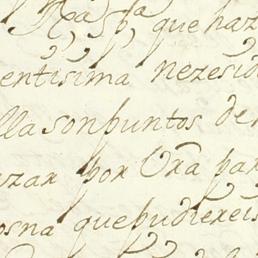 Rᵃˢ Pᵃ que haz
entisima nezesid
lla son puntos de
zar por Vra par
osna que pudiereis